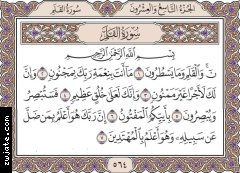 الجزء التاسع والعشرون سورة القلم
سورة القلم
بسم الله الرحمن الرحيم
ن والقلم وما يسطرون ١ ما أنت بنعمة ربك بمجنون ٢ وإن
لك لأجرا غير ممنون ٣ وإنك لعلى خلق عظيم ٤ فستبصر
ويبصرون ٥ بأييكم المفتون ٦ إن ربك هو أعلم بمن ضل
عن سبيله وهو أعلم بالمهتدين ٧
٥٦٤
zujate.com